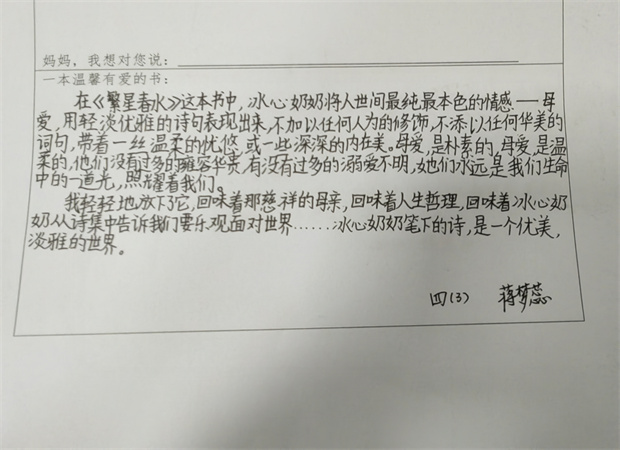 妈妈，我想对您说：
一本温馨有爱的书：
在《繁星春水》这本书中，冰心奶奶将人世间最纯最本色的情感——母
爱，用轻淡优雅的诗句表现出来，不加以任何人为的修饰，不添以任何华美的
词句，带着一丝温柔的忧悠，或一些深深的内在美。母爱，是朴素的，母爱，是温
柔的，他们没有过多的雍容华贵，有没有过多的溺爱不明，她们永远是我们生命
中的一道光，照耀着我们。
我轻轻地放下了它，回味着那慈祥的母亲，回味着人生哲理，回味着冰心奶
奶从诗集中告诉我们要乐观面对世界……冰心奶奶笔下的诗，是一个优美，
淡雅的世界。
四（3） 蒋梦蕊